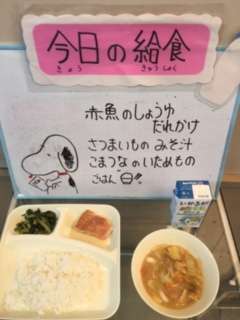 今日の給食
きょう きゅうしょく
赤魚のしょうゆ
だれかけ
さつまいもの みそ汁
こまつなのいためもの
ごはん